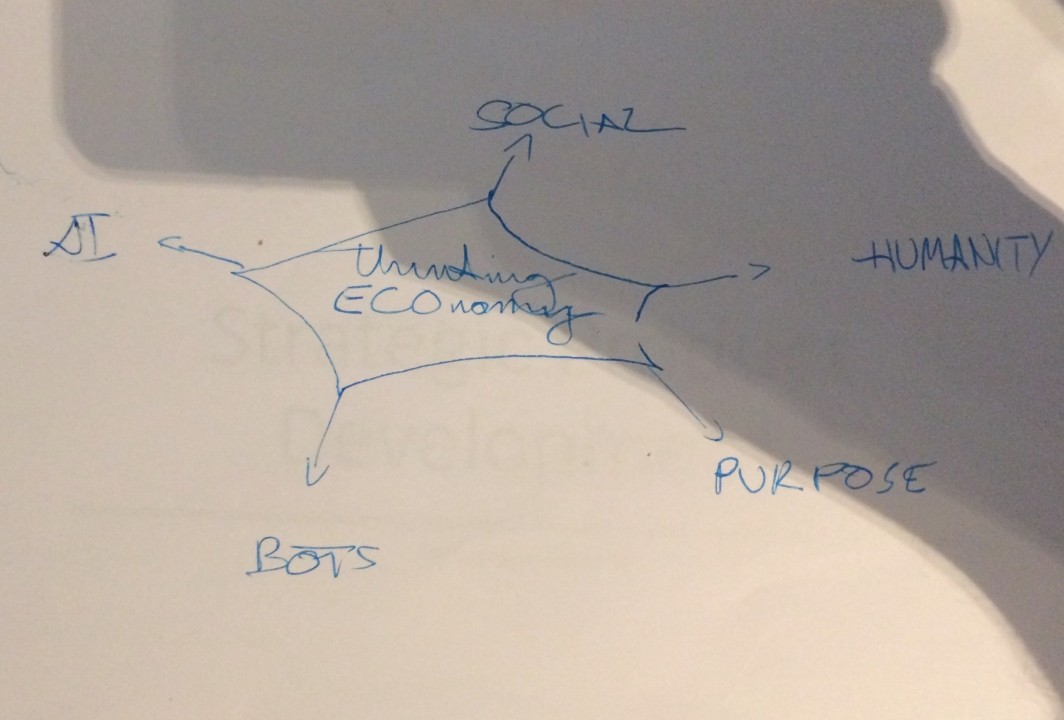 SOCIAL
AI
HUMANITY
thinking
ECOnomy
Strategic
Develop
PURPOSE
BOTS